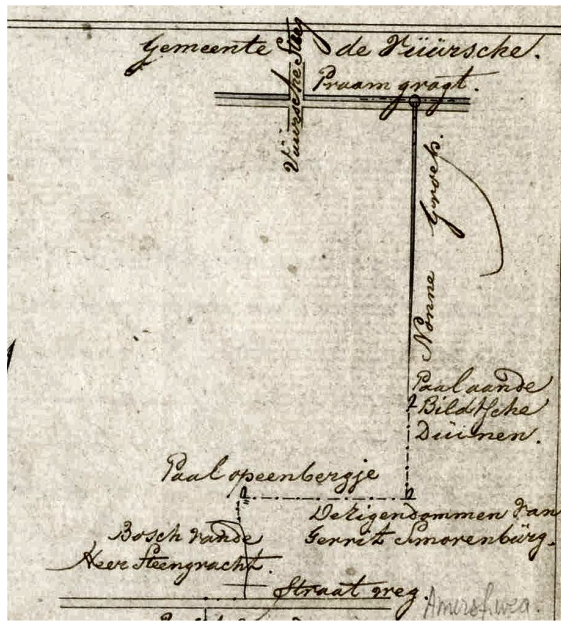 Gemeente de Vüürsche.
Vüürsche Steeg
Praamgragt.
Nonne Groep.
Paal aan de
Bildtsche
Düinen.
Paal op een bergje
De Eigendommen van
Gerrit Smorenbürg.
Bosch van de
Heer Steengracht.
Straat weg.
Amersf. weg.